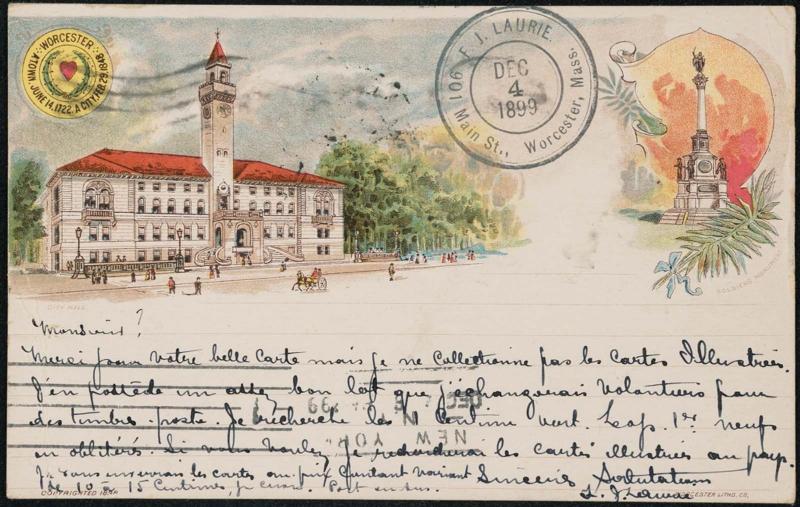 WORCESTER
A TOWN, JUNE 14, 1722. A CITY, FEB. 29, 1848.
F. J. LAURIE.
DEC
4
1899
901 Main St., Worcester, Mass.
CITY HALL
SOLDIERS MONUMENT
Monsieur?
Merci pour votre belle carte mais je ne collectionne pas les cartes Illustrées.
J'en possède un assez bon lot que j'échangerais volontiers pour
des timbres-poste. Je recherche les 1 Centime vert. Cap. 1er neufs
ou oblitérés. Si vous voulez, je les cartes illustrées au pays.
Je vous enverrais les cartes au prix variant Sincères Salutations
de 10 à 15 Centimes, je crois. Port en sus. F. J. Laurie
NEW YORK
99
COPYRIGHTED 1898
WORCESTER LITHO. CO.